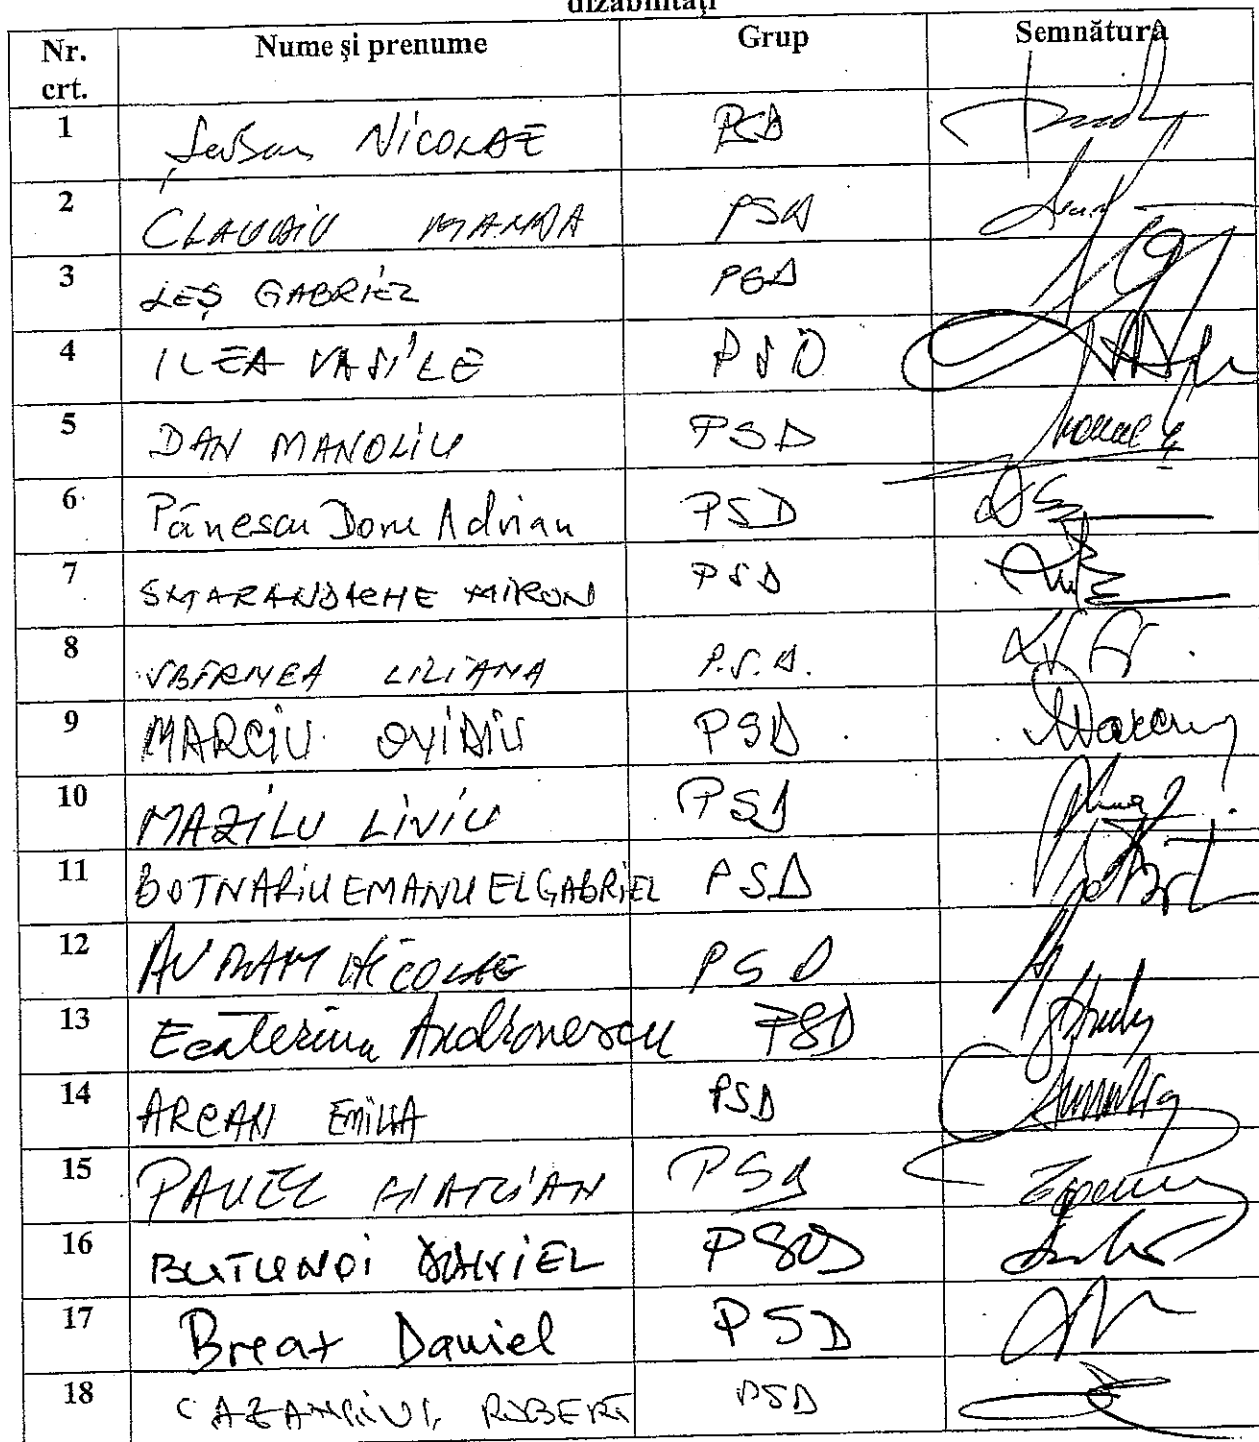 dizabilități
Nr. crt. Nume și prenume Grup Semnătură
1 Șerban NICOLAE PSD
2 CLAUDIU MANDA PSD
3 LEȘ GABRIEL PSD
4 ILEA VASILE PSD
5 DAN MANOLIU PSD
6 Pănescu Doru Adrian PSD
7 SMARANDACHE MIRON PSD
8 SBÎRNEA LILIANA P.S.D.
9 MARCIU OVIDIU PSD
10 MAZILU LIVIU PSD
11 BOTNARIU EMANUEL GABRIEL PSD
12 AVRAM NICOLAE PSD
13 Ecaterina Andronescu PSD
14 ARCAN EMILIA PSD
15 PAVEL MARIAN PSD
16 BUTUNOI DANIEL PSD
17 Breaz Daniel PSD
18 CAZANCIUC ROBERT PSD